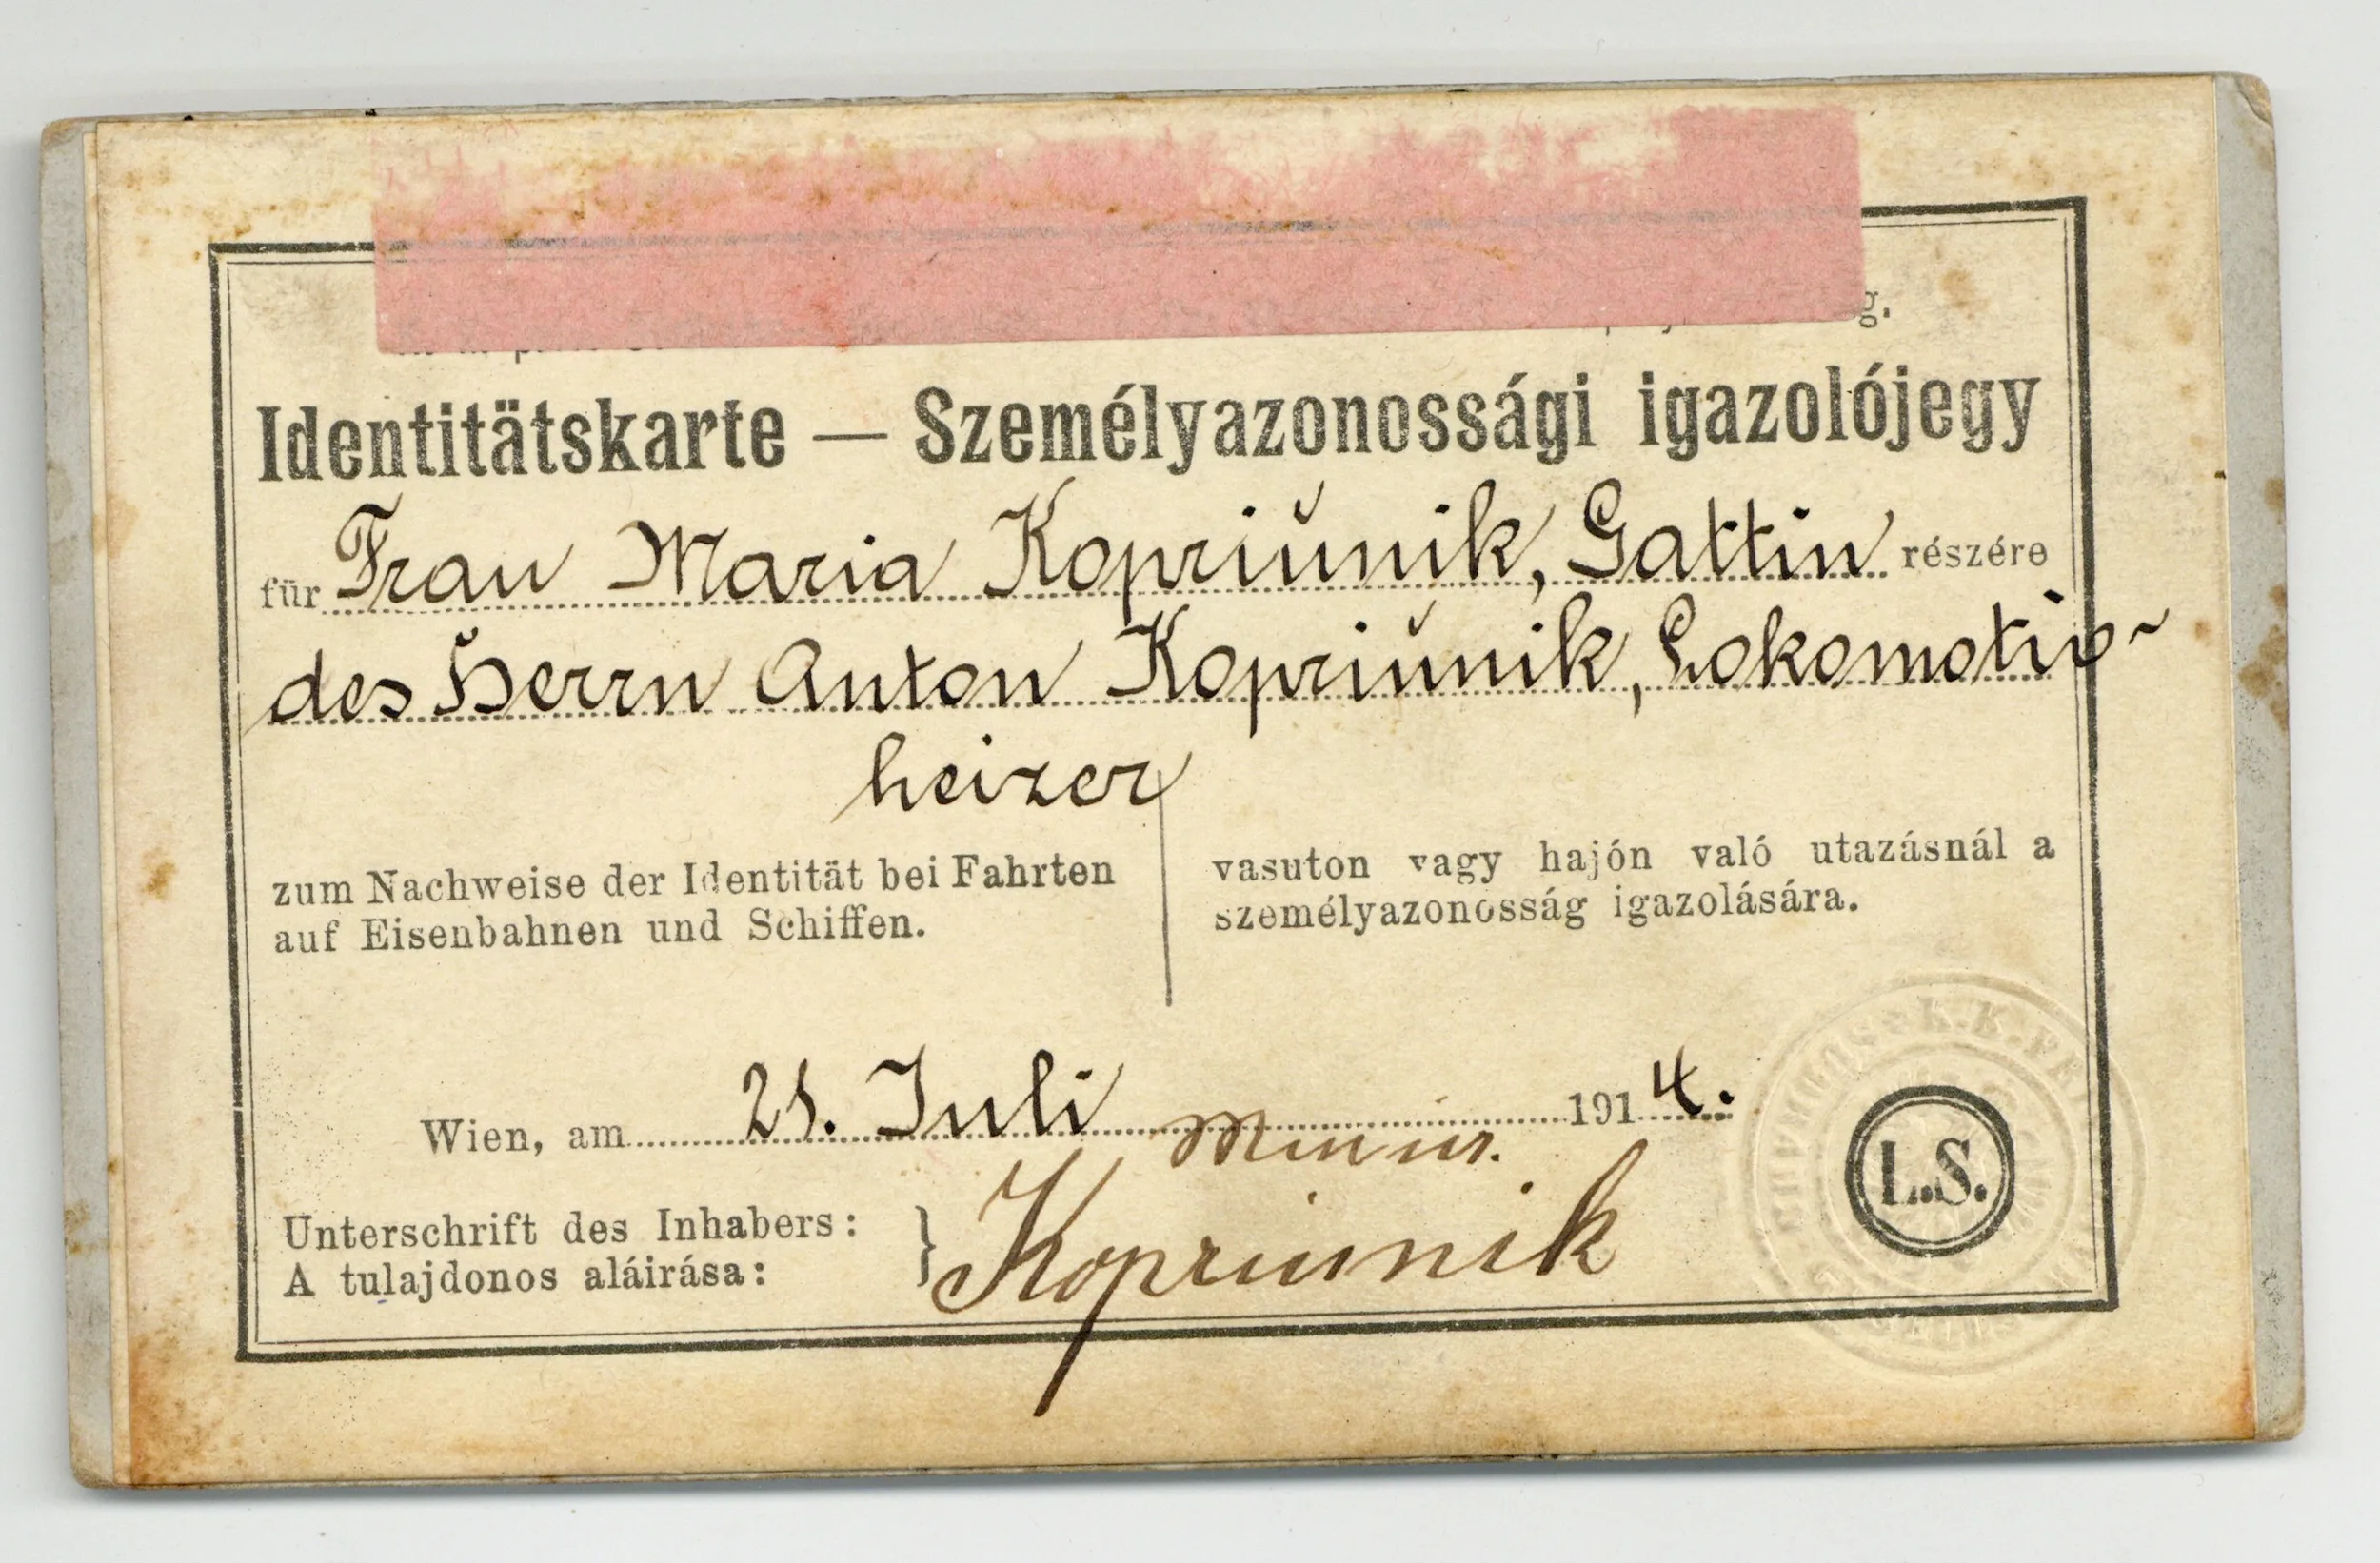 Identitätskarte — Személyazonossági igazolójegy
für Frau Maria Kopriunik, Gattin részére
des Herrn Anton Kopriunik, Lokomotiv-
heizer
zum Nachweise der Identität bei Fahrten
auf Eisenbahnen und Schiffen.
vasuton vagy hajón való utazásnál a
személyazonosság igazolására.
Wien, am Juli 1914.
Unterschrift des Inhabers:
A tulajdonos aláirása:
} Kopriunik
L.S.
K.K.